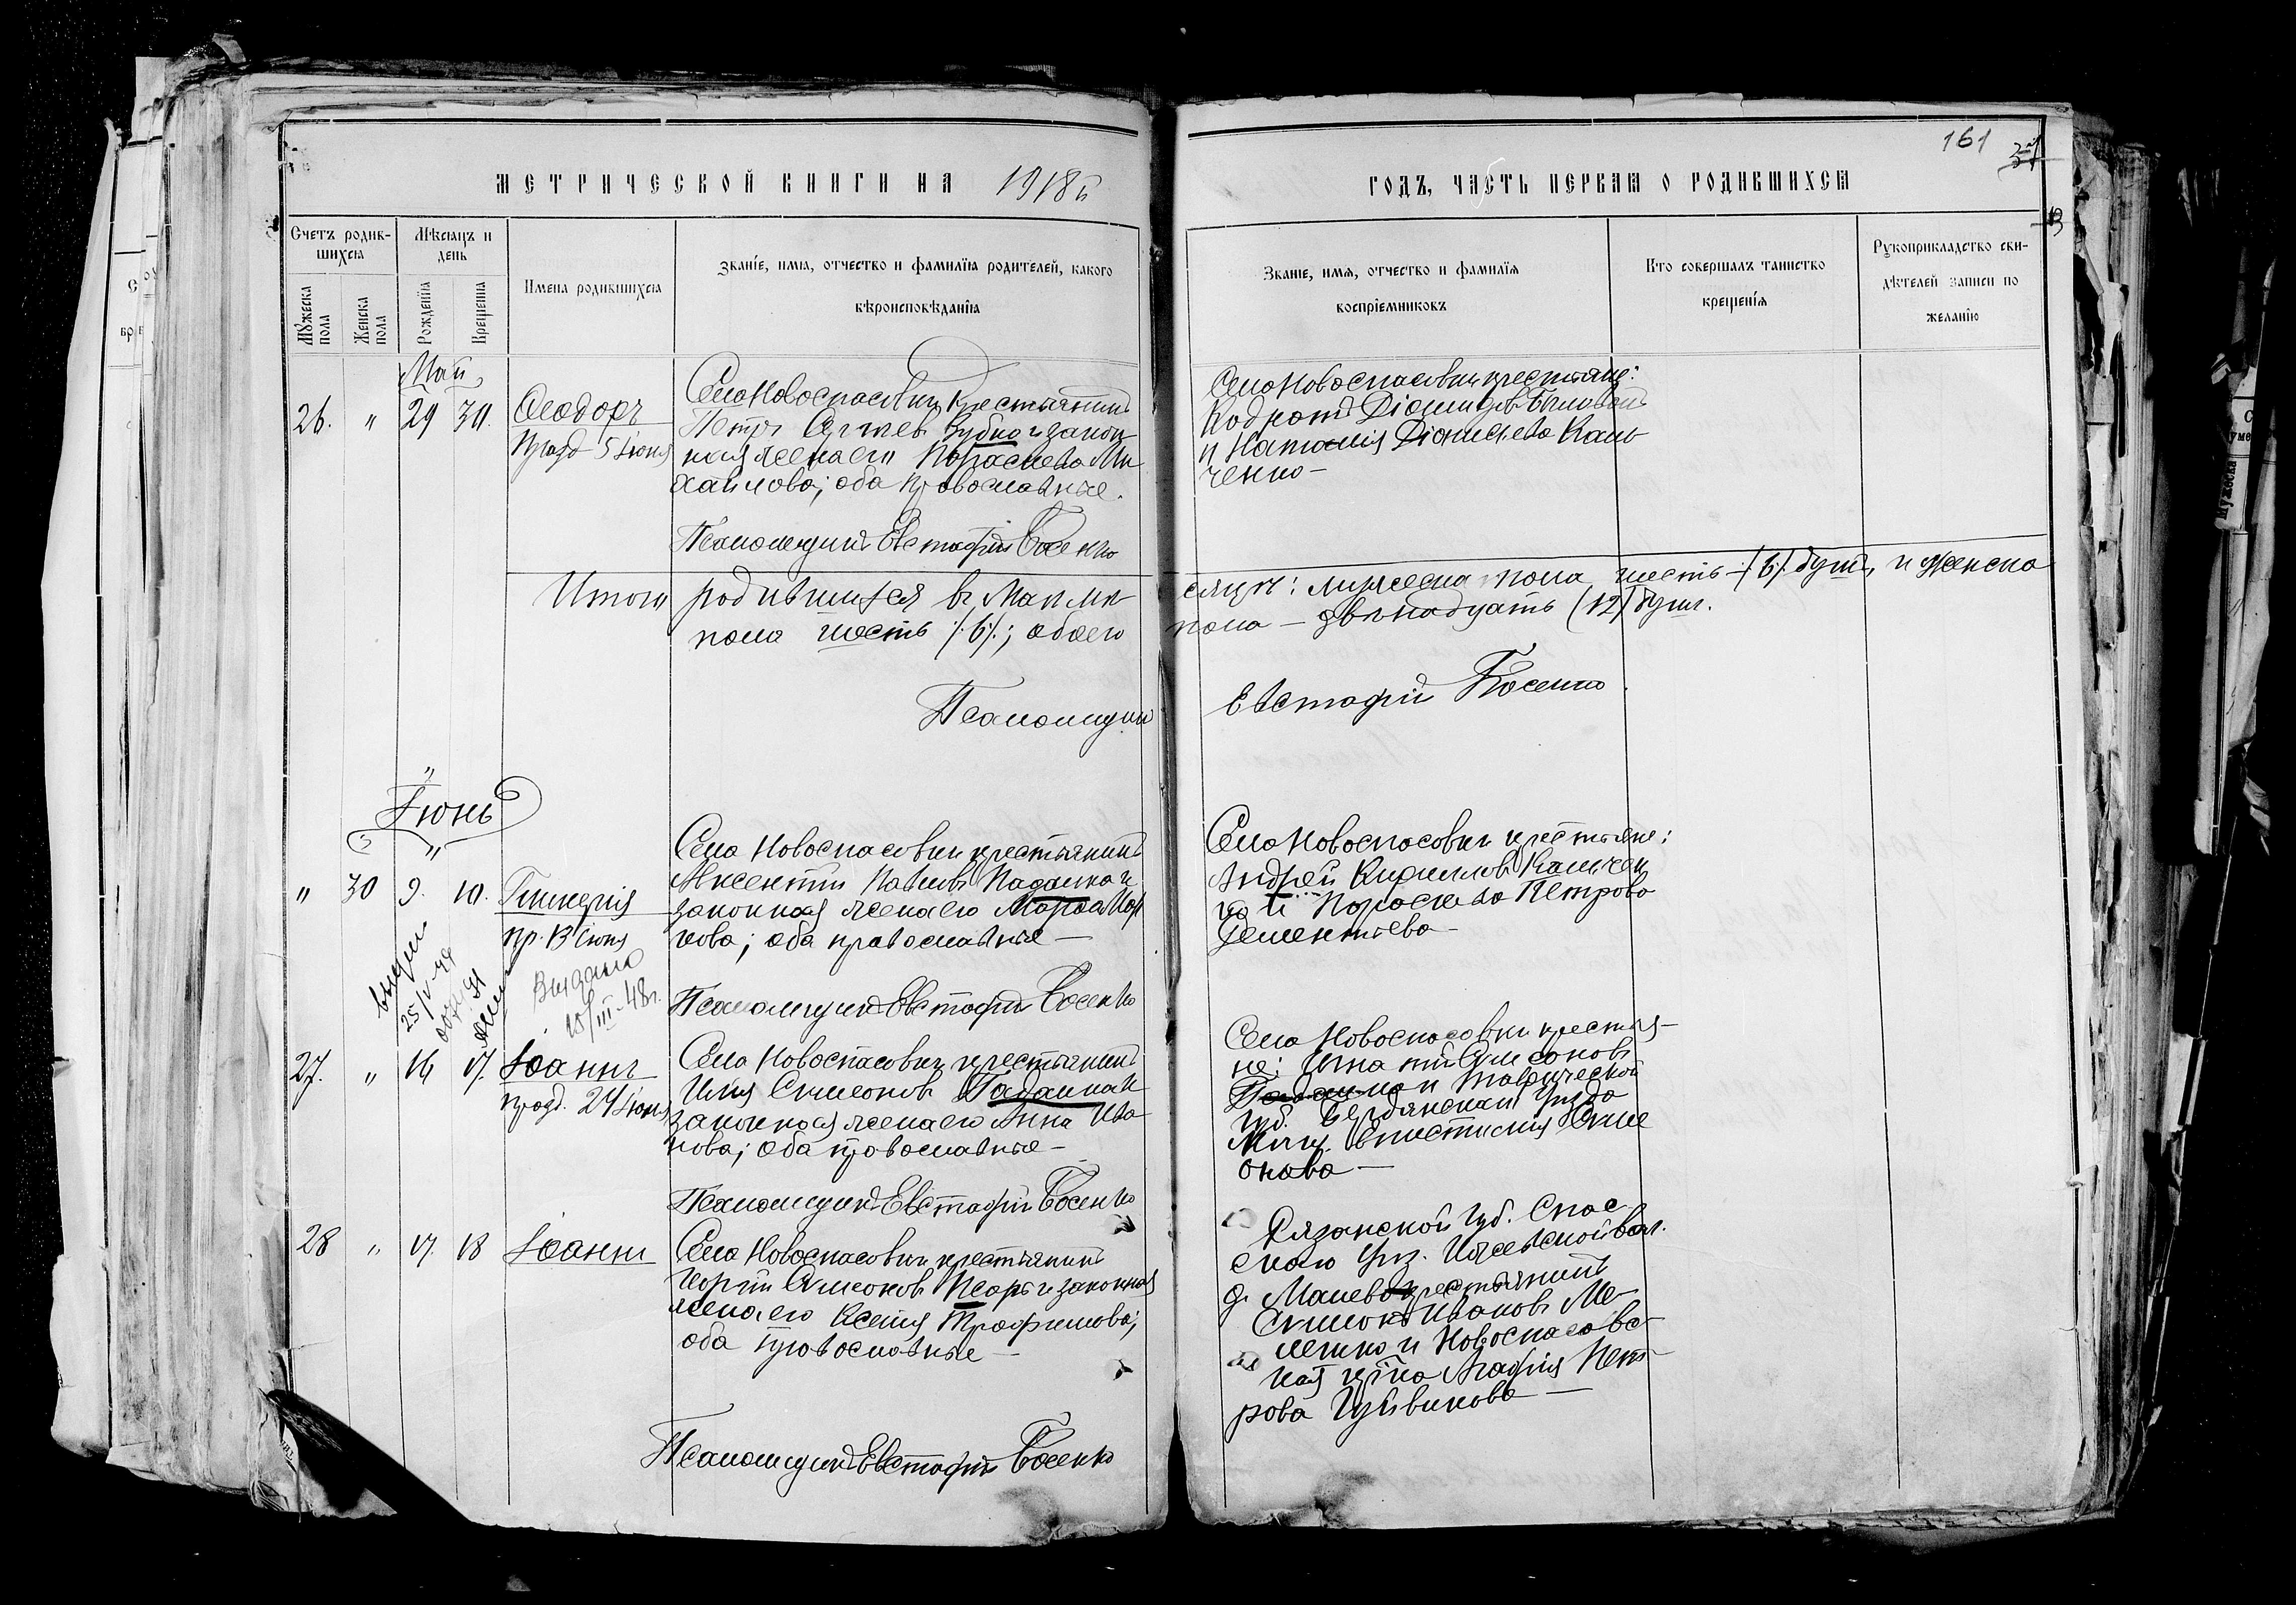 161
МЕТРИЧЕСКОЙ КНИГИ НА 1918 г.
ГОДЪ, ЧАСТЬ ПЕРВАЯ О РОДИВШИХСЯ
Счетъ родив-
шихся
Мужеска пола
Женска пола
Мѣсяцъ и
день
Рожденія
Крещенія
Имена родившихся
Званіе, имя, отчество и фамилія родителей, какого
вѣроисповѣданія
Званіе, имя, отчество и фамилія
воспріемниковъ
Кто совершалъ таинство
крещенія
Рукоприкладство сви-
дѣтелей записи по
желанію
Май
26. " 29 30. Ѳеодоръ
Празд 5 Іюня
Села Новоспасовки крестьянинъ
Петръ Зубко и закон
ная жена его Параскева Ми
хайлова; оба православные.
Псаломщикъ Евстафій Косенко
Села Новоспасовки крестьяне:
Кодратъ
и Наталія Каль
ченко —
Итого родившихся въ Маѣ мѣ
сяцѣ: мужеска пола шесть /6/ душъ, и женска
пола шесть /6/; обоего
пола — двѣнадцать (12) душъ.
Псаломщикъ
Евстафій Косенко.
"
Іюнь
"
" 30 9. 10. Гликерія
Пр. 13 Іюня
Выдано
10/III-48 г.
25/V-49
Села Новоспасовки крестьянинъ
Авксентій Гадалка и
законная жена его
кова; оба православные —
Псаломщикъ Евстафій Косенко
Села Новоспасовки крестьяне:
Андрей Кирилловъ Кальчен
ко и Параскева Петрова
Дементьева —
27. " 16 17. Іоаннъ
празд. 24 Іюня
Села Новоспасовки крестьянинъ
Илья Симеоновъ Гадалка и
законная жена его Анна Ива
нова; оба православные —
Псаломщикъ Евстафій Косенко
Села Новоспасовки крестья-
не: Игнатій Симеоновъ
Гадалка и Таврической
губ. Бердянскаго уѣзда
Симе
онова —
28 " 17. 18 Іоаннъ
Села Новоспасовки крестьянинъ
Георгій Симеоновъ Псарь и законная
жена его Ксенія Трофимова;
оба православные —
Псаломщикъ Евстафій Косенко
Рязанской губ. Спас
скаго уѣз. Ижевской вол.
д. крестьянинъ
Симеонъ Ивановъ Ме-
лешко и Новоспасовс-
кая кр-ка Агафія Пет-
рова